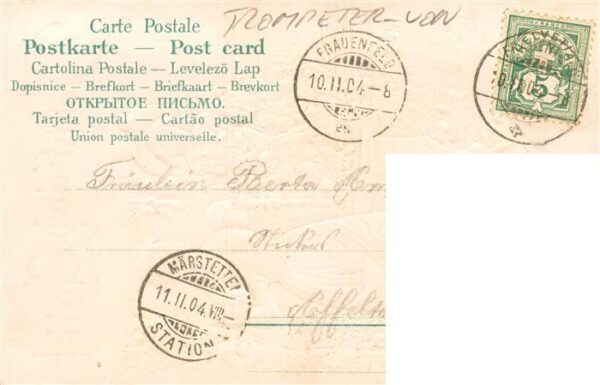 TROMPETER-VON
Carte Postale
Postkarte — Post card
Cartolina Postale — Levelező Lap
Dopisnice — Brefkort — Briefkaart — Brevkort
ОТКРЫТОЕ ПИСЬМО.
Tarjeta postal — Cartão postal
Union postale universelle.
FRAUENFELD
10.II.04.-8
FRANCO
HELVETIA
5
Fräulein Berta
MÄRSTETTEN
11.II.04.VIII-
STATION